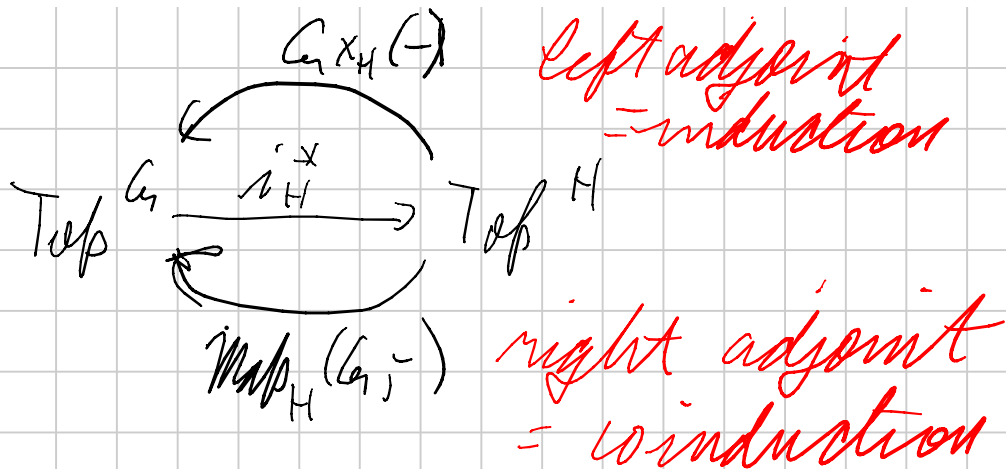 G ×_H (-)
left adjoint
= induction
Top^G i_H^* Top^H
map_H(G, -)
right adjoint
= coinduction